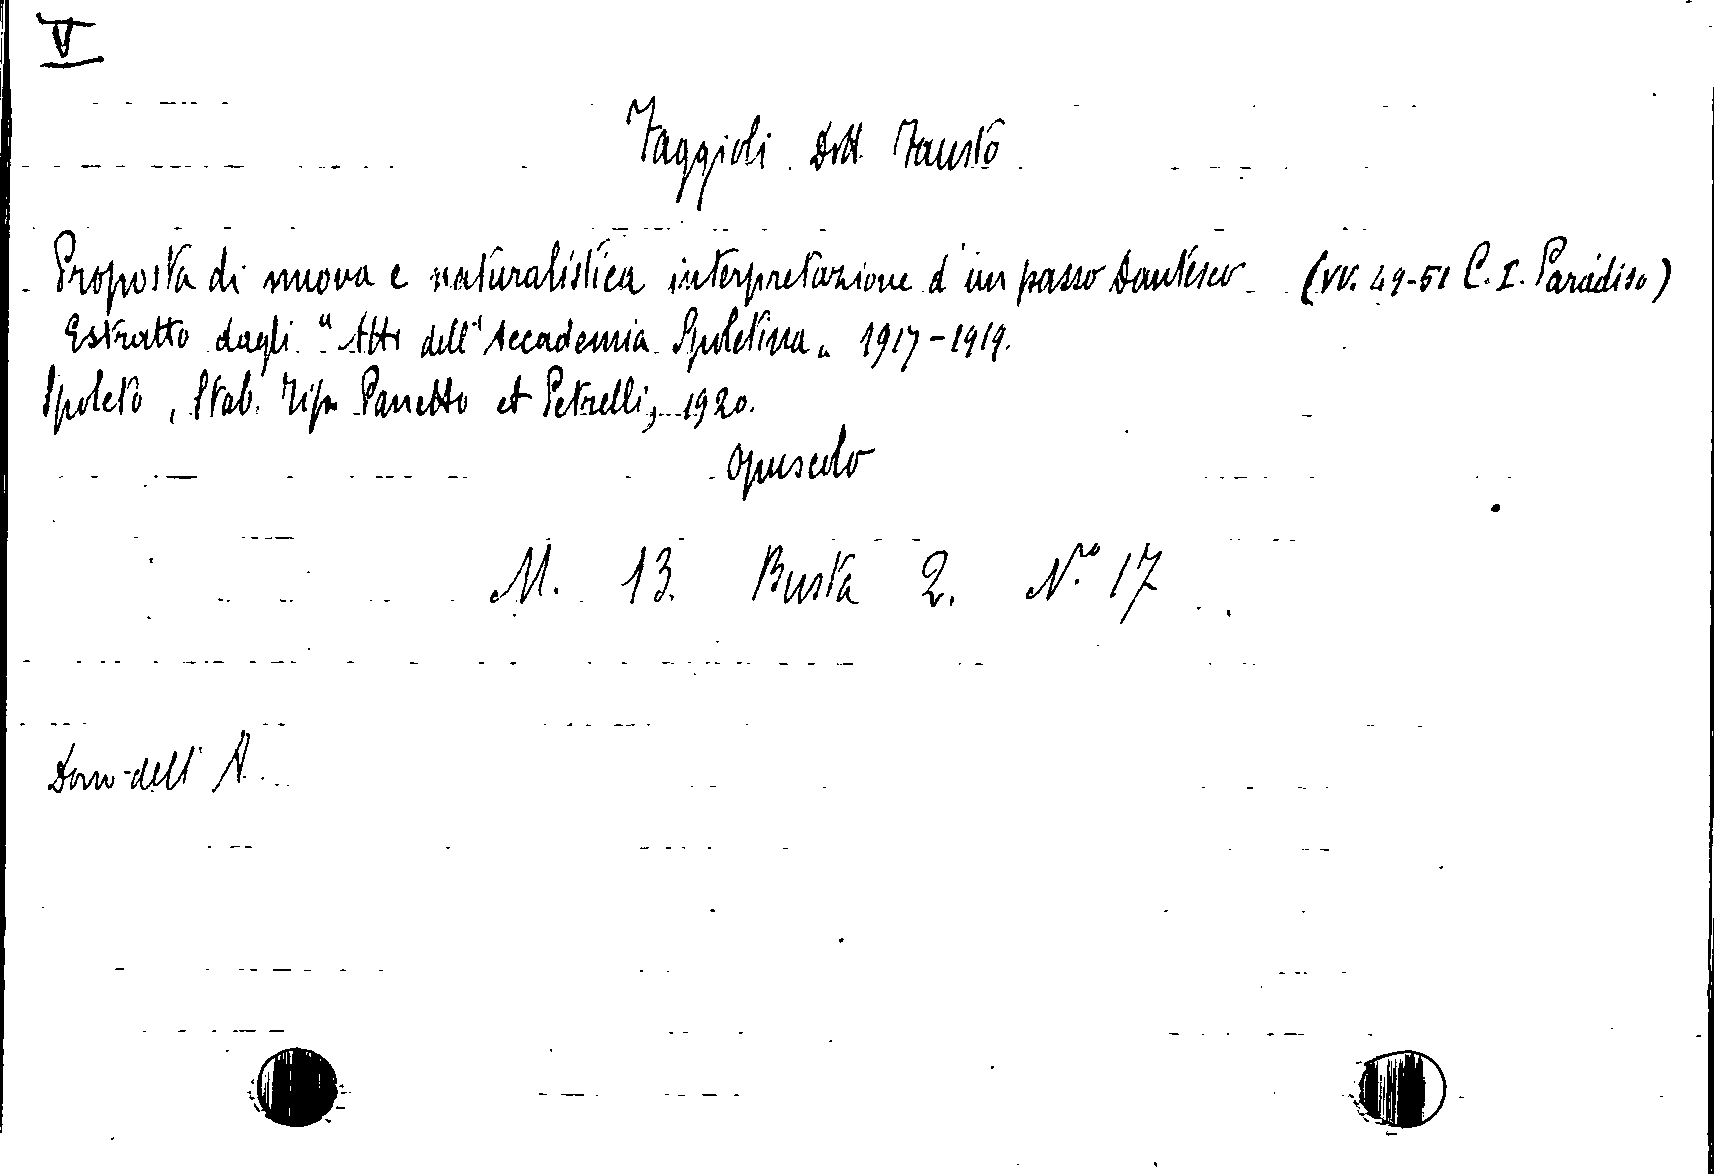 V
Faggioli Dott. Fausto
Proposta di nuova e naturalistica interpretazione d'un passo Dantesco (vv. 49-51 C. I. Paradiso)
Estratto dagli "Atti dell'Accademia Spoletina" 1917-1919.
Spoleto, Stab. Tip. Panetto et Petrelli, 1920.
opuscolo
M. 13. Busta 2. N.ro 17
Dono dell'A.